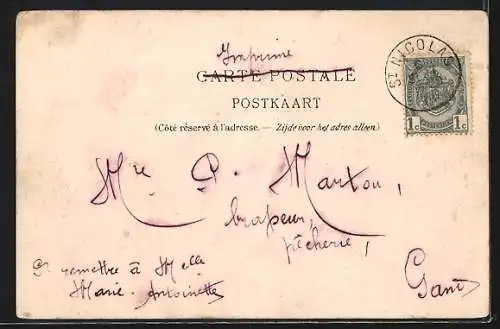 Imprimé
CARTE POSTALE
POSTKAART
(Côté réservé à l'adresse. — Zijde voor het adres alleen)
ST NICOLAS
1c 1c
Mr P. Marton,
brasseur,
pêcherie,
Gand
remettre à Melle
Marie-Antoinette